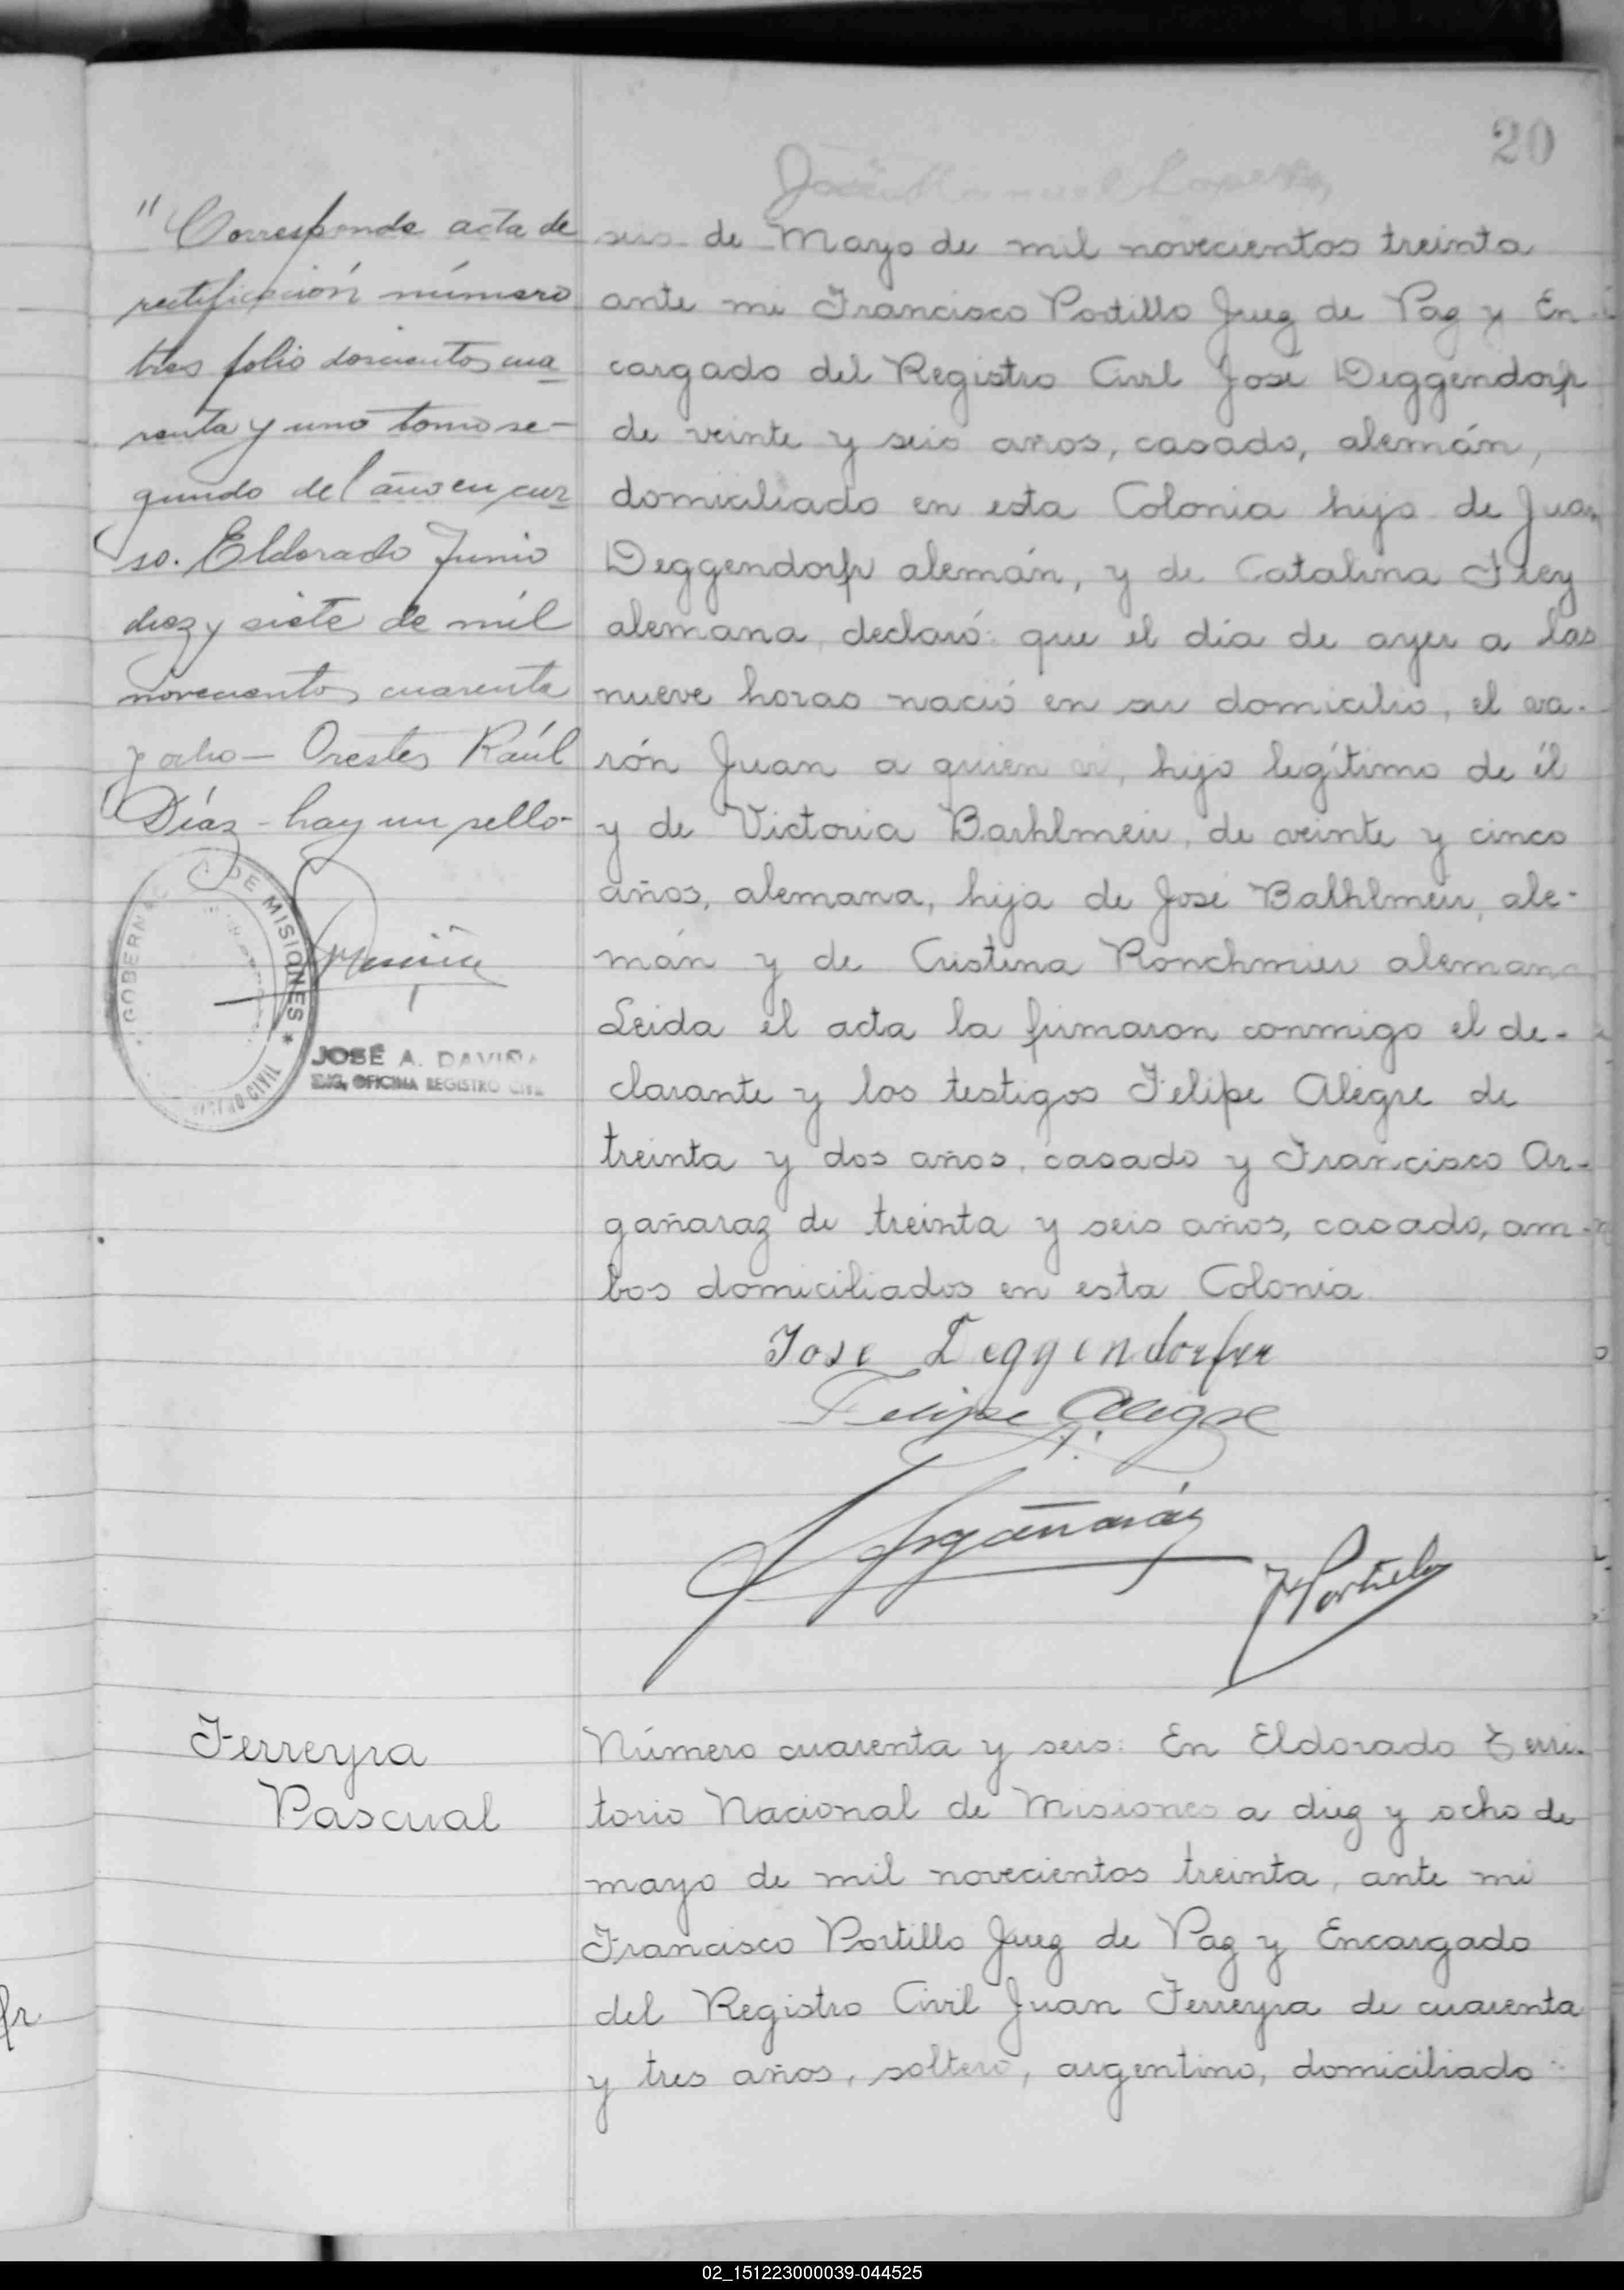 20
"Corresponde acta de
rectificación número
tres folio doscientos cua
renta y uno tomo se-
gundo del año en cur
so. Eldorado Junio
diez y siete de mil
novecientos cuarenta
y ocho - Orestes Raúl
Díaz - hay un sello-
GOBERNAC DE MISIONES * CIVIL
JOSÉ A. DAVIÑA
ENC. OFICINA REGISTRO CIVIL
seis de Mayo de mil novecientos treinta
ante mi Francisco Portillo Juez de Paz y En
cargado del Registro Civil José Deggendorfr
de veinte y seis años, casado, alemán,
domiciliado en esta Colonia hijo de Juan
Deggendorfr alemán, y de Catalina Frey
alemana, declaró: que el día de ayer a las
nueve horas nació en su domicilio, el va-
rón Juan a quien vi, hijo legítimo de él
y de Victoria Barhlmeir, de veinte y cinco
años, alemana, hija de José Balhlmeir, ale-
mán y de Cristina Ronchmier alemana
Leida el acta la firmaron conmigo el de-
clarante y los testigos Felipe Alegre de
treinta y dos años, casado y Francisco Ar-
gañaraz de treinta y seis años, casado, am-
bos domiciliados en esta Colonia.
Jose Deggendorfer
Felipe Alegre
Argañaráz
F Portillo
Ferreyra
Pascual
Número cuarenta y seis: En Eldorado Terri-
torio Nacional de Misiones a diez y ocho de
mayo de mil novecientos treinta, ante mi
Francisco Portillo Juez de Paz y Encargado
del Registro Civil Juan Ferreyra de cuarenta
y tres años, soltero, argentino, domiciliado
fr
02_151223000039-044525